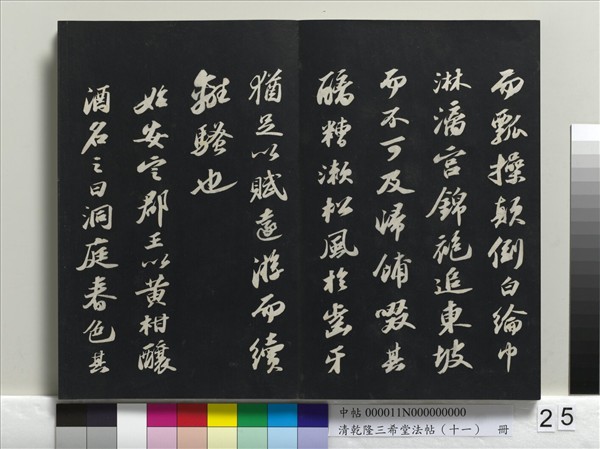 而瓢操顛倒白綸巾
淋漓宮錦袍追東坡
而不可及歸餔啜其
醨糟漱松風於齒牙
猶足以賦遠游而續
離騷也
始安定郡王以黃柑釀
酒名之曰洞庭春色其
中帖 000011N000000000
清乾隆三希堂法帖(十一) 冊
25